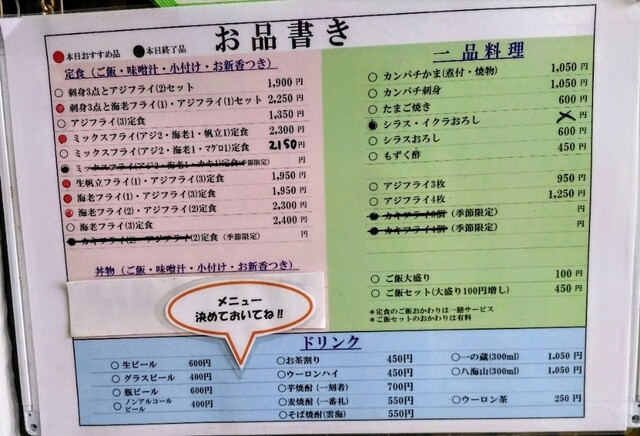 お品書き
本日おすすめ品 本日終了品
定食（ご飯・味噌汁・小付け・お新香つき）
刺身3点とアジフライ(2)セット 1,900 円
刺身3点と海老フライ(1)・アジフライ(1)セット 2,250 円
アジフライ(3)定食 1,350 円
ミックスフライ(アジ2・海老1・帆立1)定食 2,300 円
ミックスフライ(アジ2・海老1・マグロ1)定食 2150 円
ミックスフライ(アジ2・海老1・カキ1)定食(季節限定) 円
生帆立フライ(1)・アジフライ(3)定食 1,950 円
海老フライ(1)・アジフライ(3)定食 1,950 円
海老フライ(2)・アジフライ(2)定食 2,300 円
海老フライ(3)定食 2,400 円
カキフライ(2)・アジフライ(2)定食（季節限定） 円
丼物（ご飯・味噌汁・小付け・お新香つき）
メニュー
決めておいてね!!
一品料理
カンパチかま(煮付・焼物) 1,050 円
カンパチ刺身 1,050 円
たまご焼き 600 円
シラス・イクラおろし 円
シラスおろし 600 円
もずく酢 450 円
アジフライ3枚 950 円
アジフライ4枚 1,250 円
カキフライ3個（季節限定） 円
カキフライ4個（季節限定） 円
ご飯大盛り 100 円
ご飯セット(大盛り100円増し) 450 円
*定食のご飯おかわりは一膳サービス
*ご飯セットのおかわりは有料
ドリンク
生ビール 600円
グラスビール 400円
瓶ビール 600円
ノンアルコール
ビール 400円
お茶割り 450円
ウーロンハイ 450円
芋焼酎(一刻者) 700円
麦焼酎(一番札) 550円
そば焼酎(雲海) 550円
一の蔵(300ml) 1,050 円
八海山(300ml) 1,050 円
ウーロン茶 250 円